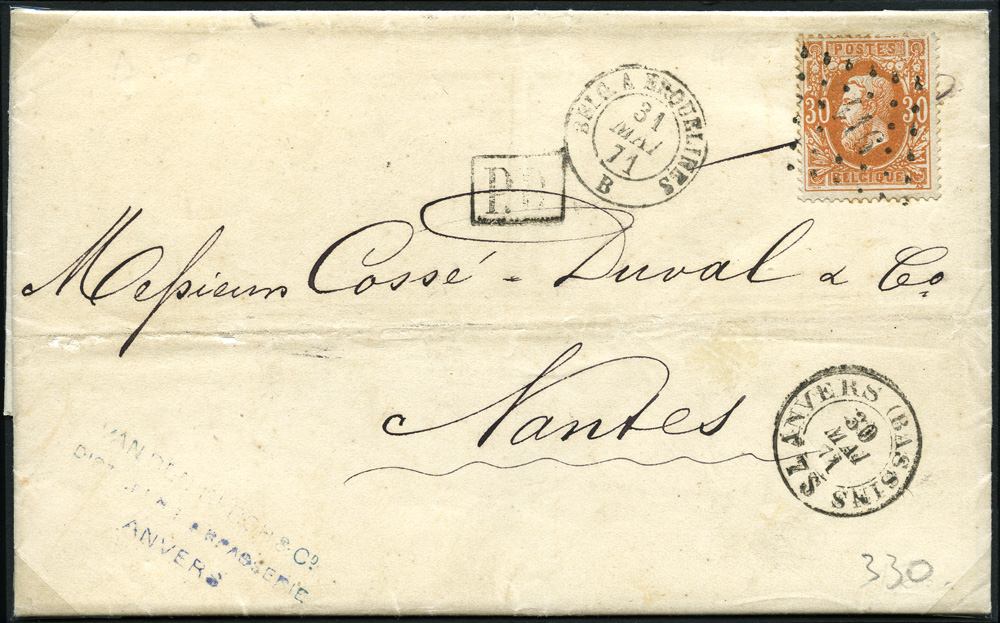 POSTES
30 30
BELGIQUE
BELG. A ERQUELINES
31
MAI
71
B
P.D.
Messieurs Cossé - Duval & Co
Nantes
ANVERS (BASSINS
30
MAI
71
& Co
ANVERS
330